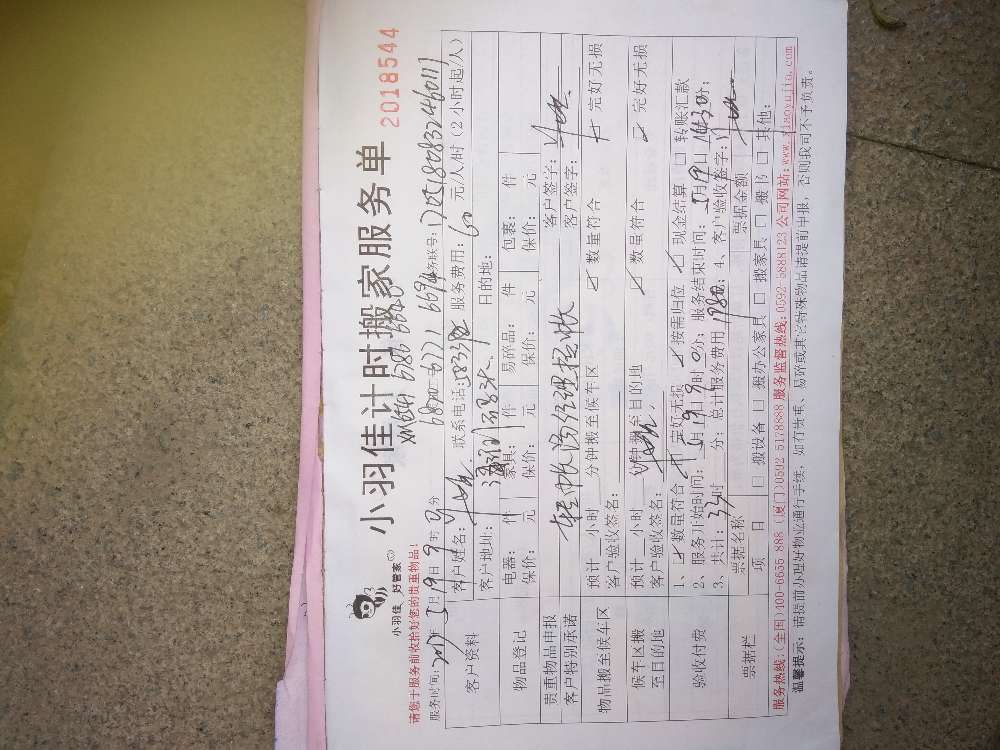 小羽佳 好管家
小羽佳计时搬家服务单
2018544
请您于服务前收拾好您的贵重物品!
服务时间: 2017年 5月 19日 9时 0分
6671 6694 务联号: 170518083246011
客户资料
客户姓名: 联系电话: 服务费用: 60 元/人/时 (2小时起/人)
客户地址: 目的地:
物品登记
电器: 件 家具: 件 易碎品: 件 包裹: 件
保价: 元 保价: 元 保价: 元 保价: 元
贵重物品申报 客户签字:
客户特别承诺 客户签字:
物品搬至候车区
预计 小时 分钟搬至候车区 ☑ 数量符合 完好无损
客户验收签名:
候车区搬至目的地
预计 小时 分钟搬至目的地 ☑ 数量符合 ☑ 完好无损
客户验收签名:
验收付费
1、☑ 数量符合 完好无损 ☑ 按需归位 ☑ 现金结算 □ 转账汇款
2、服务开始时间: 5月19日9时0分; 服务结束时间: 5月19日
3、共计: 33时 分; 总计服务费用 1980; 4、客户验收签字:
票据栏
票据名称 票据金额
项 目 □ 搬设备 □ 搬办公家具 □ 搬家具 □ 搬书 □ 其他:
服务热线:(全国)400-6655 888 (厦门)0592 5178888 服务监督热线:0592 5888123 公司网站:www.xiaoyujia.com
温馨提示: 请提前办理好物业通行手续, 如有贵重、易碎或其它特殊物品请提前申报, 否则我司不予负责。